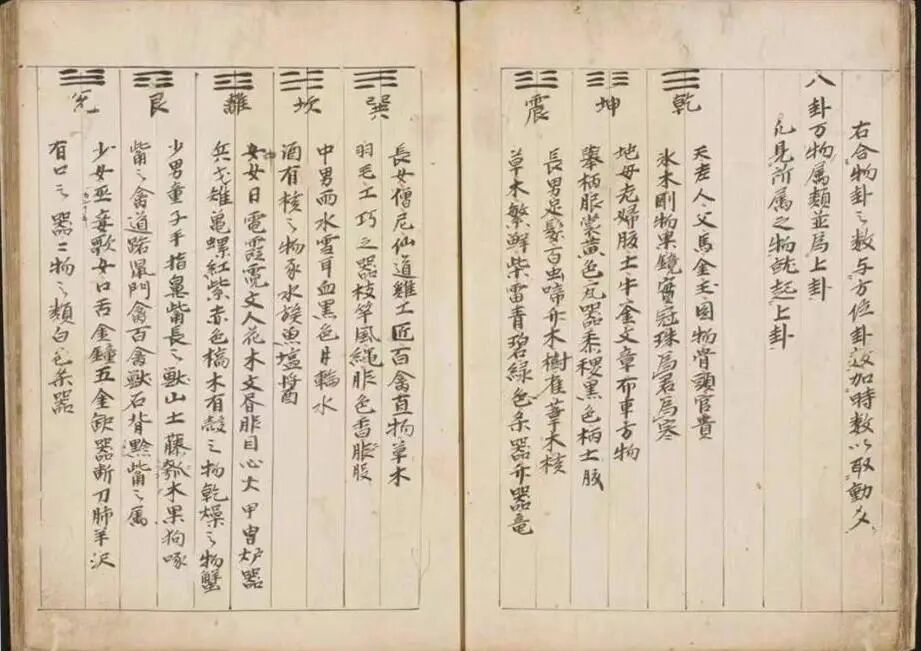 右合物卦之数与方位卦数加時数以取動爻
八卦万物属類並為上卦
凡見所属之物既起上卦
乾
天老人父馬金玉圓物骨頭官貴
氷木剛物果鏡實冠珠為君為寒
坤
地母老婦腹土牛金文章布車方物
裳黄色瓦器黍稷黑色柄土
震
長男足髪百虫啼介木樹萑華木核
草木繁鮮柴雷青碧緑色条器介器竜
巽
長女僧尼仙道雞工匠百禽直物草木
羽毛工巧之器枝竿風縄色香股
坎
中男雨水雲耳血黒色月輪水
酒有核之物豕水族魚塩
離
女日電霞霓文人花木文目心火甲冑炉器
兵戈雉亀螺紅紫赤色槁木有殻之物乾燥之物蟹
艮
少男童子手指鼻觜長之獣山土藤瓠木果狗啄
觜之禽道路門禽百禽獣石背黔觜之属
兌
少女巫妾歌女口舌金鐘五金缺器断刀肺羊沢
有口之器二物之類白色条器